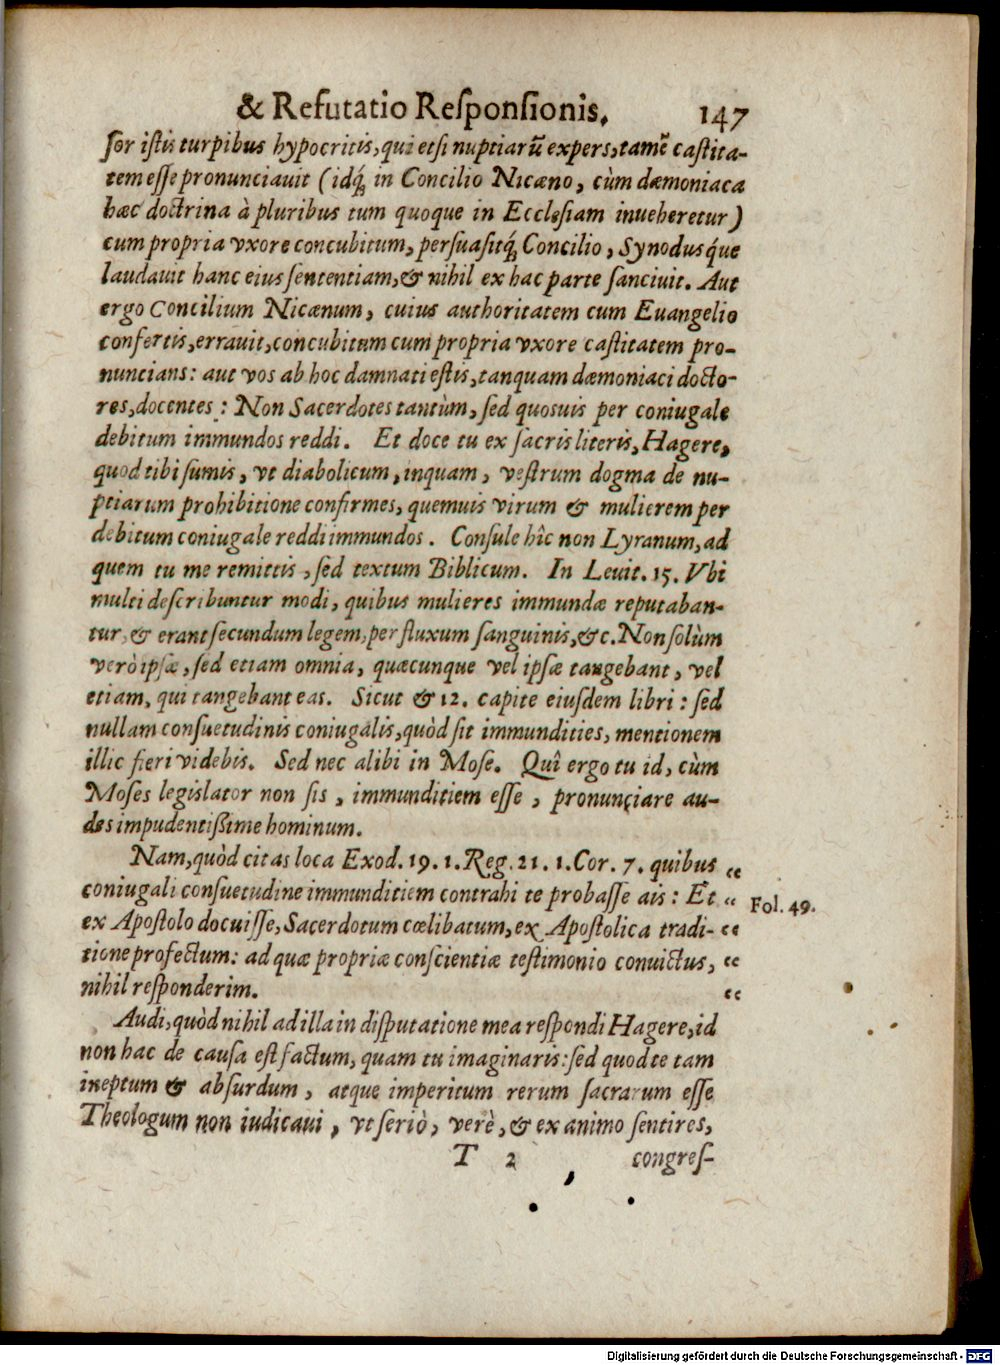 & Refutatio Reſponſionis. 147
ſor iſtis turpibus hypocritis, qui etſi nuptiarũ expers, tamẽ caſtita-
tem eſſe pronunciauit (idq́; in Concilio Nicæno, cùm dæmoniaca
hæc doctrina à pluribus tum quoque in Eccleſiam inueheretur)
cum propria vxore concubitum, perſuaſitq́; Concilio, Synodusq́ue
laudauit hanc eius ſententiam, & nihil ex hac parte ſanciuit. Aut
ergo Concilium Nicænum, cuius authoritatem cum Euangelio
confertis, errauit, concubitum cum propria vxore caſtitatem pro-
nuncians: aut vos ab hoc damnati eſtis, tanquam dæmoniaci docto-
res, docentes: Non Sacerdotes tantùm, ſed quosuis per coniugale
debitum immundos reddi. Et doce tu ex ſacris literis, Hagere,
quod tibi ſumis, vt diabolicum, inquam, veſtrum dogma de nu-
ptiarum prohibitione confirmes, quemuis virum & mulierem per
debitum coniugale reddi immundos. Conſule hîc non Lyranum, ad
quem tu me remittis, ſed textum Biblicum. In Leuit. 15. Vbi
multi deſcribuntur modi, quibus mulieres immundæ reputaban-
tur, & erant ſecundum legem, per fluxum ſanguinis, &c. Non ſolùm
verò ipſæ, ſed etiam omnia, quæcunque vel ipſæ tangebant, vel
etiam, qui tangebant eas. Sicut & 12. capite eiuſdem libri: ſed
nullam conſuetudinis coniugalis, quòd ſit immundities, mentionem
illic fieri videbis. Sed nec alibi in Moſe. Quî ergo tu id, cùm
Moſes legislator non ſis, immunditiem eſſe, pronunciare au-
des impudentißime hominum.
Nam, quòd citas loca Exod. 19. 1. Reg. 21. 1. Cor. 7. quibus “
coniugali conſuetudine immunditiem contrahi te probaſſe ais: Et “ Fol. 49.
ex Apoſtolo docuiſſe, Sacerdotum cœlibatum, ex Apoſtolica tradi- “
tione profectum: ad quæ propriæ conſcientiæ teſtimonio conuictus, “
nihil reſponderim. “
Audi, quòd nihil ad illa in diſputatione mea reſpondi Hagere, id
non hac de cauſa eſt factum, quam tu imaginaris: ſed quod te tam
ineptum & abſurdum, atque imperitum rerum ſacrarum eſſe
Theologum non iudicaui, vt ſeriò, verè, & ex animo ſentires,
T 2 congreſ-
Digitalisierung gefördert durch die Deutsche Forschungsgemeinschaft - DFG